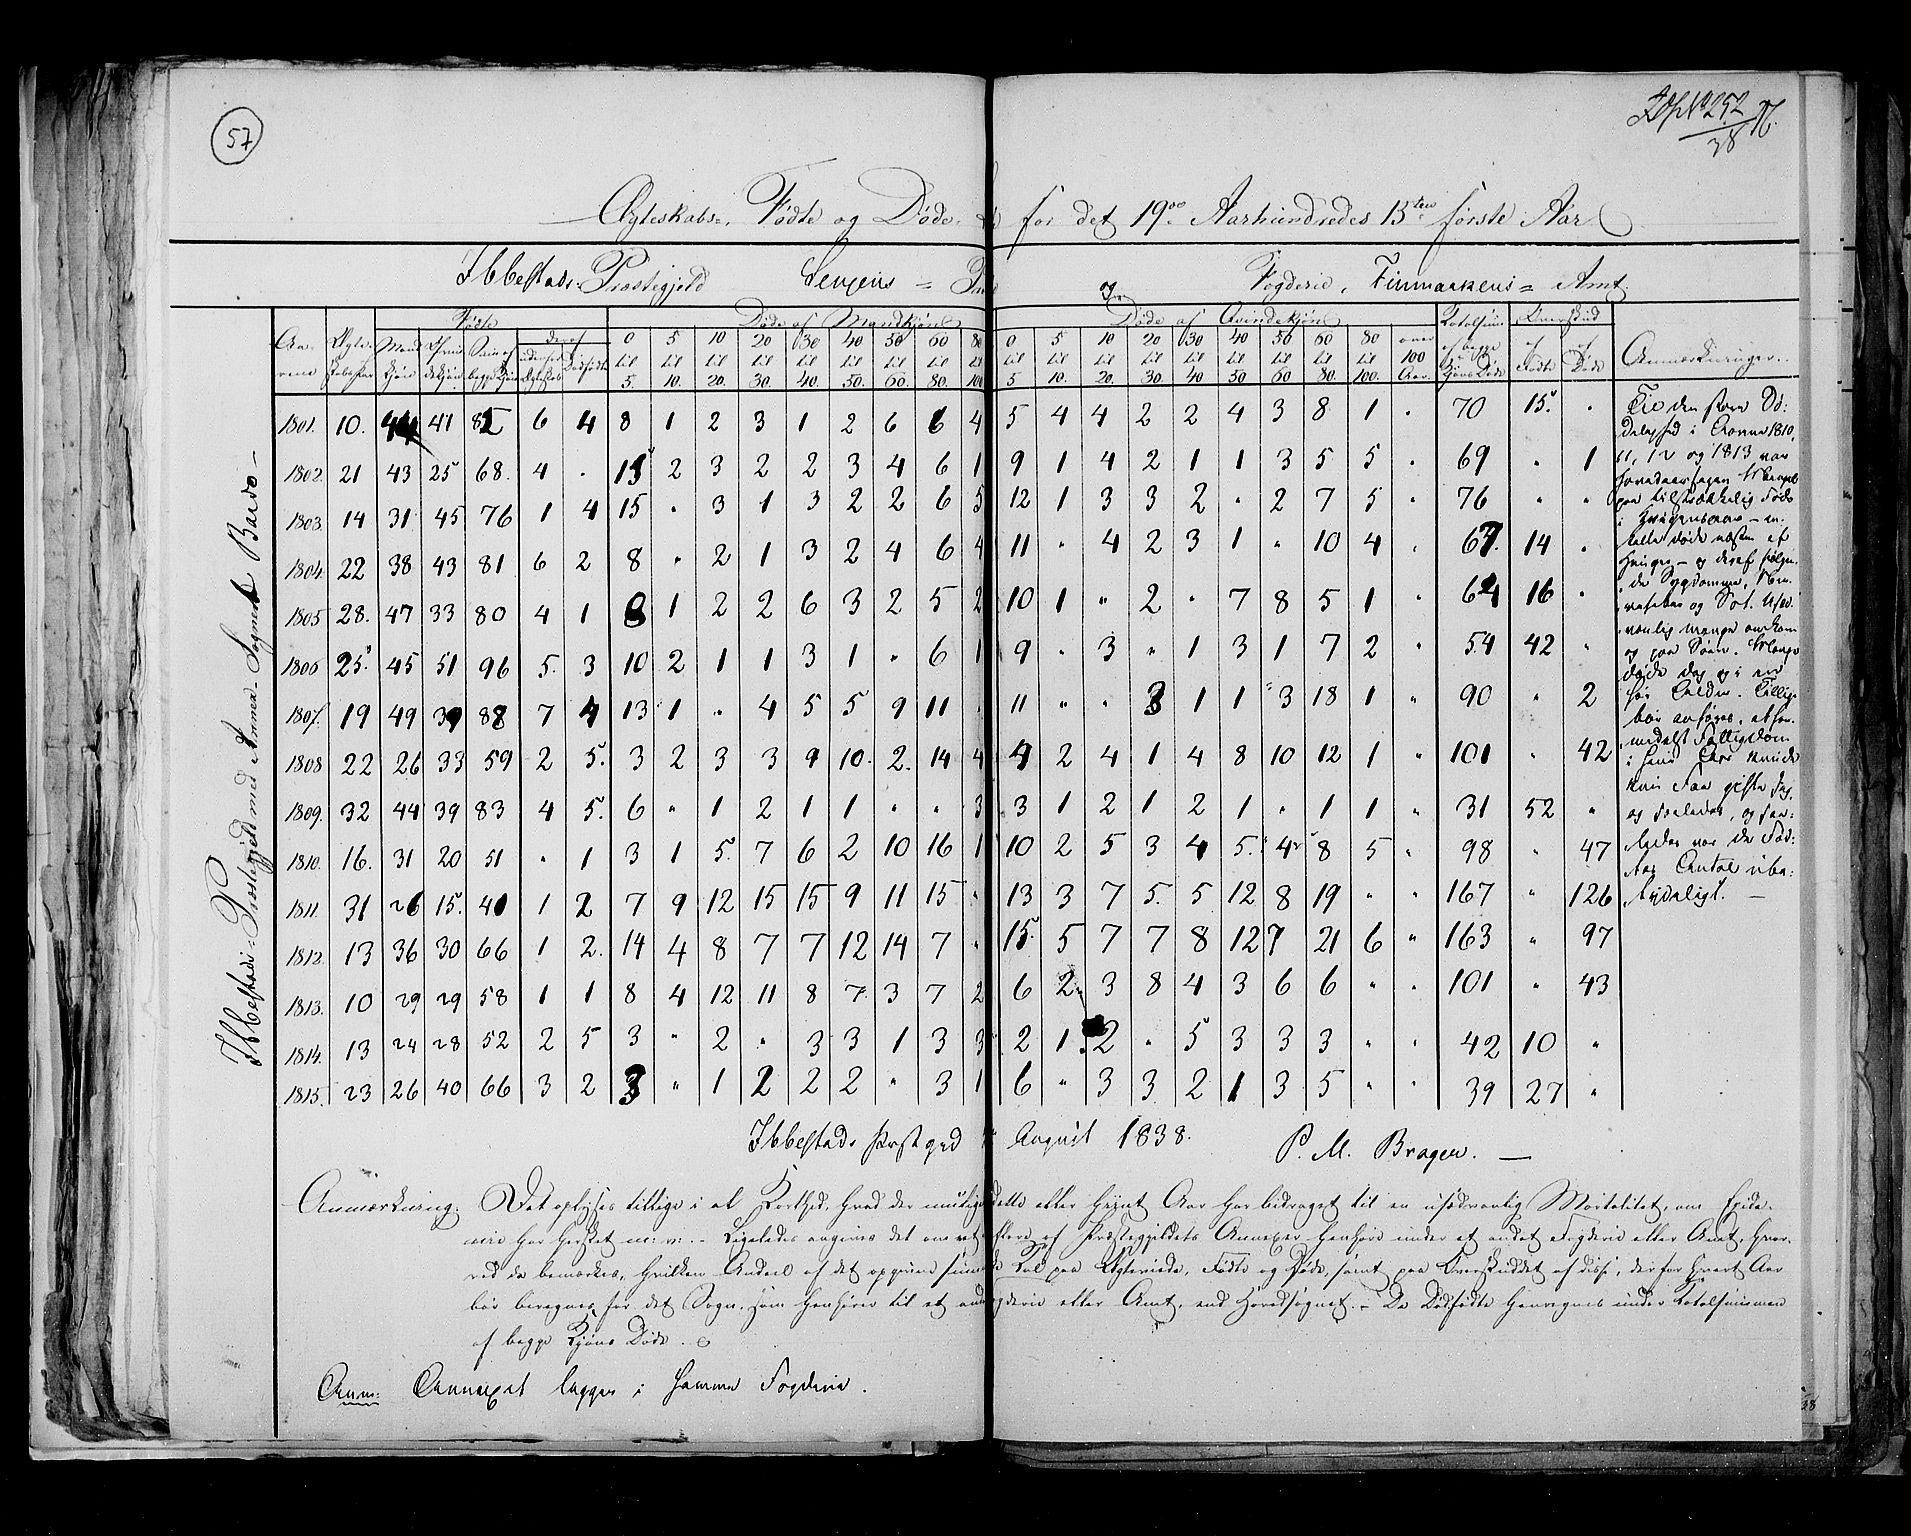 57
252
38
Ægteskabs-, Fødte og Døde- for det 19de Aarhundredes 15ten første Aar
Ibbestads Præstegjeld Senjens = og Fogderie, Finmarkens = Amt.
Ibbestads Præstegjeld med Annex-Sognet Bardo
Fødte Døde af Mandkjøn Døde af Qvindekjøn Totalsum Overskud
Aarene Ægteskaber Mandkjøn Qvindekjøn Sum af begge Kjøn deraf udenfor Ægteskab Dødfødte 0 til 5. 5 til 10. 10 til 20. 20 til 30. 30 til 40. 40 til 50. 50 til 60. 60 til 80. 80 til 100 0 til 5 5 til 10. 10 til 20. 20 til 30. 30 til 40 40 til 50 50 til 60 60 til 80. 80 til 100. over 100 Aar. af begge Kjøns Døde af Fødte af Døde Anmærkninger.
1801. 10. 44 41 85 6 4 8 1 2 3 1 2 6 6 4 5 4 4 2 2 4 3 8 1 " 70 15. "
1802. 21 43 25 68. 4 . 15 2 3 2 2 3 4 6 1 9 1 4 2 1 1 3 5 5 " 69 " 1
1803. 14 31 45 76 1 4 15 " 3 1 3 2 2 6 5 12 1 3 3 2 " 2 7 5 " 76 " "
1804. 22 38 43 81 6 2 8 " 2 1 3 2 4 6 4 11 " 4 2 3 1 " 10 4 " 67. 14 "
1805 28. 47 33 80 4 1 8 1 2 2 6 3 2 5 2 10 1 " 2 " 7 8 5 1 " 64 16 "
1806 25. 45 51 96 5. 3 10 2 1 1 3 1 " 6 1 9 " 3 " 1 3 1 7 2 " 54 42 "
1807. 19 49 39 88 7 4 13 1 " 4 5 5 9 11 . 11 " " 3 1 1 3 18 1 " 90 " 2
1808 22 26 33 59 2 5. 3 2 3 3 9 10. 2. 14 4 4 2 4 1 4 8 10 12 1 " 101 " 42
1809. 32 44 39 83 4 5. 6 " 1 2 1 1 " " 3 3 1 2 1 2 1 " 1 1 " 31 52 "
1810. 16. 31 20 51 " 1 3 1 5. 7 6 2 10 16 1 10 2 5 3 4 5. 4 8 5 " 98 " 47
1811. 31 26 15. 40 1 2 7 9 12 15 15 9 11 15 " 13 3 7 5. 5 12 8 19 " " 167 " 126
1812. 13 36 30 66 1 2. 14 4 8 7 7 12 14 7 " 15. 5 7 7 8 12 7 21 6 " 163 " 97
1813. 10 29 29 58 1 1 8 4 12 11 8 7 3 7 2 6 2 3 8 4 3 6 6 " " 101 " 43
1814. 13 24 28 52 2 5 3 " 2 " 3 3 1 3 3 2 1. 2 " 5 3 3 3 " " 42 10 "
1815. 23 26 40 66 3 2 3 " 1 2 2 2 " 3 1 6 " 3 3 2 1 3 5 " " 39 27 "
Til den store Dø-
delighed i Aarene 1810,
11, 12 og 1813 var
Hovedaarsagen Mangel
paa tilstrækkelig Føde
i Krigensaar - en-
kelte døde næsten af
Hunger - og deraf følgen-
de Sygdomme,
og Sot. Usæd-
vanlig mange omkom
og paa Søen. Mange
døde
Tillige
bør anføres, at for-
medelst Fattigdom
i hine Aar kunde
kun Faa gifte sig,
og
ledes var de Fød-
tes Antal ube-
tydeligt. —
Ibbestads Præstegjeld August 1838. P. M. Bragen. —
Anmærkning. Det oplyses tillige i al Korthed, hvad der muligen i dette eller hiint Aar har bidraget til en usædvanlig Mortalitet, om Epide-
mie har hersket m: v: - Ligeledes angives det om et eller flere af Præstegjeldets Annexer henhøre under et andet Fogderie eller Amt, hvor-
ved da bemærkes, hvilken Andeel af det opgivne paa Ægteviede, Fødte og Døde, samt paa Overskuddet af disse, der for hvert Aar
bør beregnes for det Sogn, som henhører til et andet Fogderie eller Amt, end Hovedsognet. - De Dødfødte henregnes under Totalsummen
af begge Kjøns Døde.
Anm: Annexet ligger i samme Fogderie.